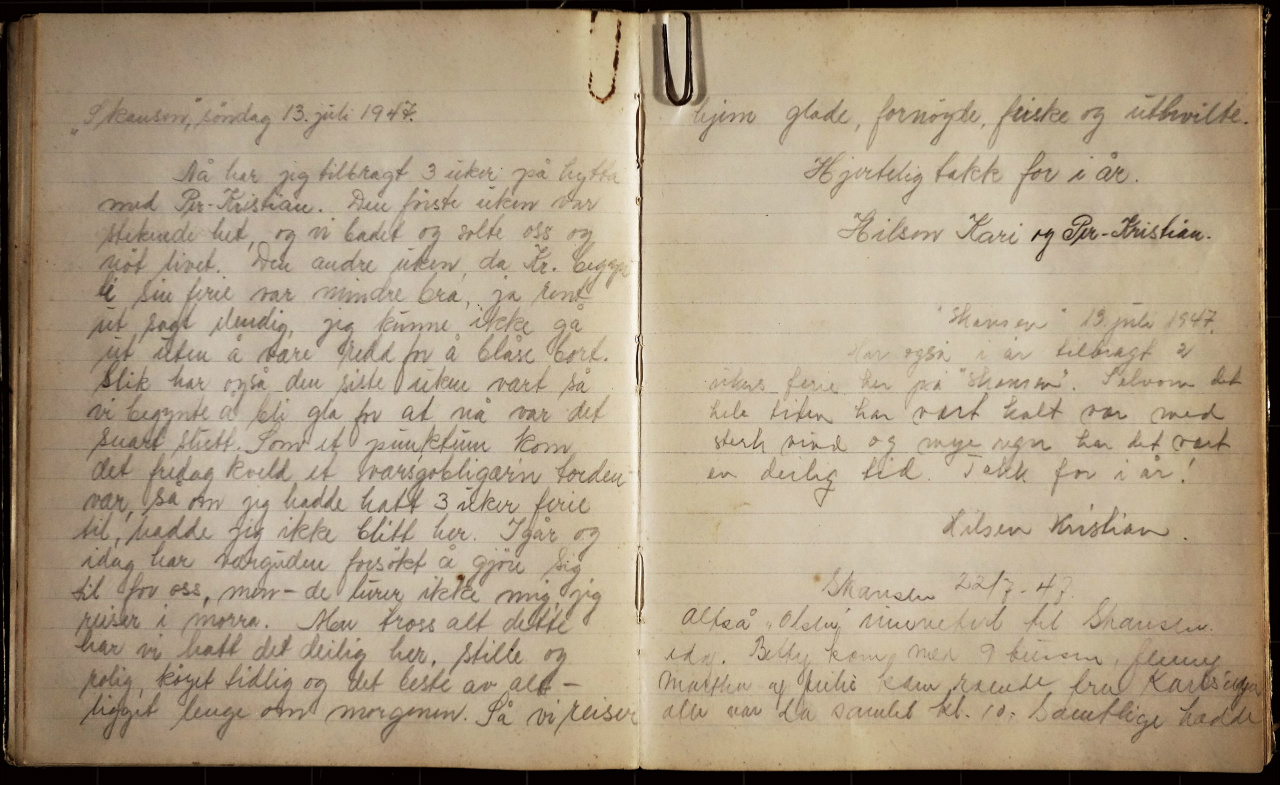 "Skansen", søndag 13. juli 1947.
Nå har jeg tilbragt 3 uker på hytta
med Per-Kristian. Den første uken var
stekende het, og vi badet og solte oss og
nøt livet. Den andre uken, da Kr. begynt
te sin ferie var mindre bra, ja rent
ut sagt elendig, jeg kunne ikke gå
ut uten å være redd for å blåse bort.
Slik har også den siste uken vært så
vi begynte å bli gla for at nå var det
snart slutt. Som et punktum kom
det fredag kveld et svarsgobligærn torden-
vær, så om jeg hadde hatt 3 uker ferie
til, hadde jeg ikke blitt her. Igår og
idag har værguden forsøkt å gjøre sig
til for oss, men - de lurer ikke mig, jeg
reiser i morra. Men tross alt dette
har vi hatt det deilig her, stille og
rolig, køyet tidlig og det beste av alt -
ligget lenge om morgenen. Så vi reiser
hjem glade, fornøyde, friske og uthvilte.
Hjertelig takk for i år.
Hilsen Kari og Per-Kristian.
"Skansen" 13 juli 1947.
Har også i år tilbragt 2
ukers ferie her på "Skansen". Selvom det
hele tiden har vært kalt vær med
sterk vind og mye regn har det vært
en deilig tid. Takk for i år!
Hilsen Kristian.
Skansen 22/7-47.
Altså til Skansen
Betty kom med 9 bussen,
Martha og kom roende fra
alle var da samlet kl. 10. Samtlige hadde